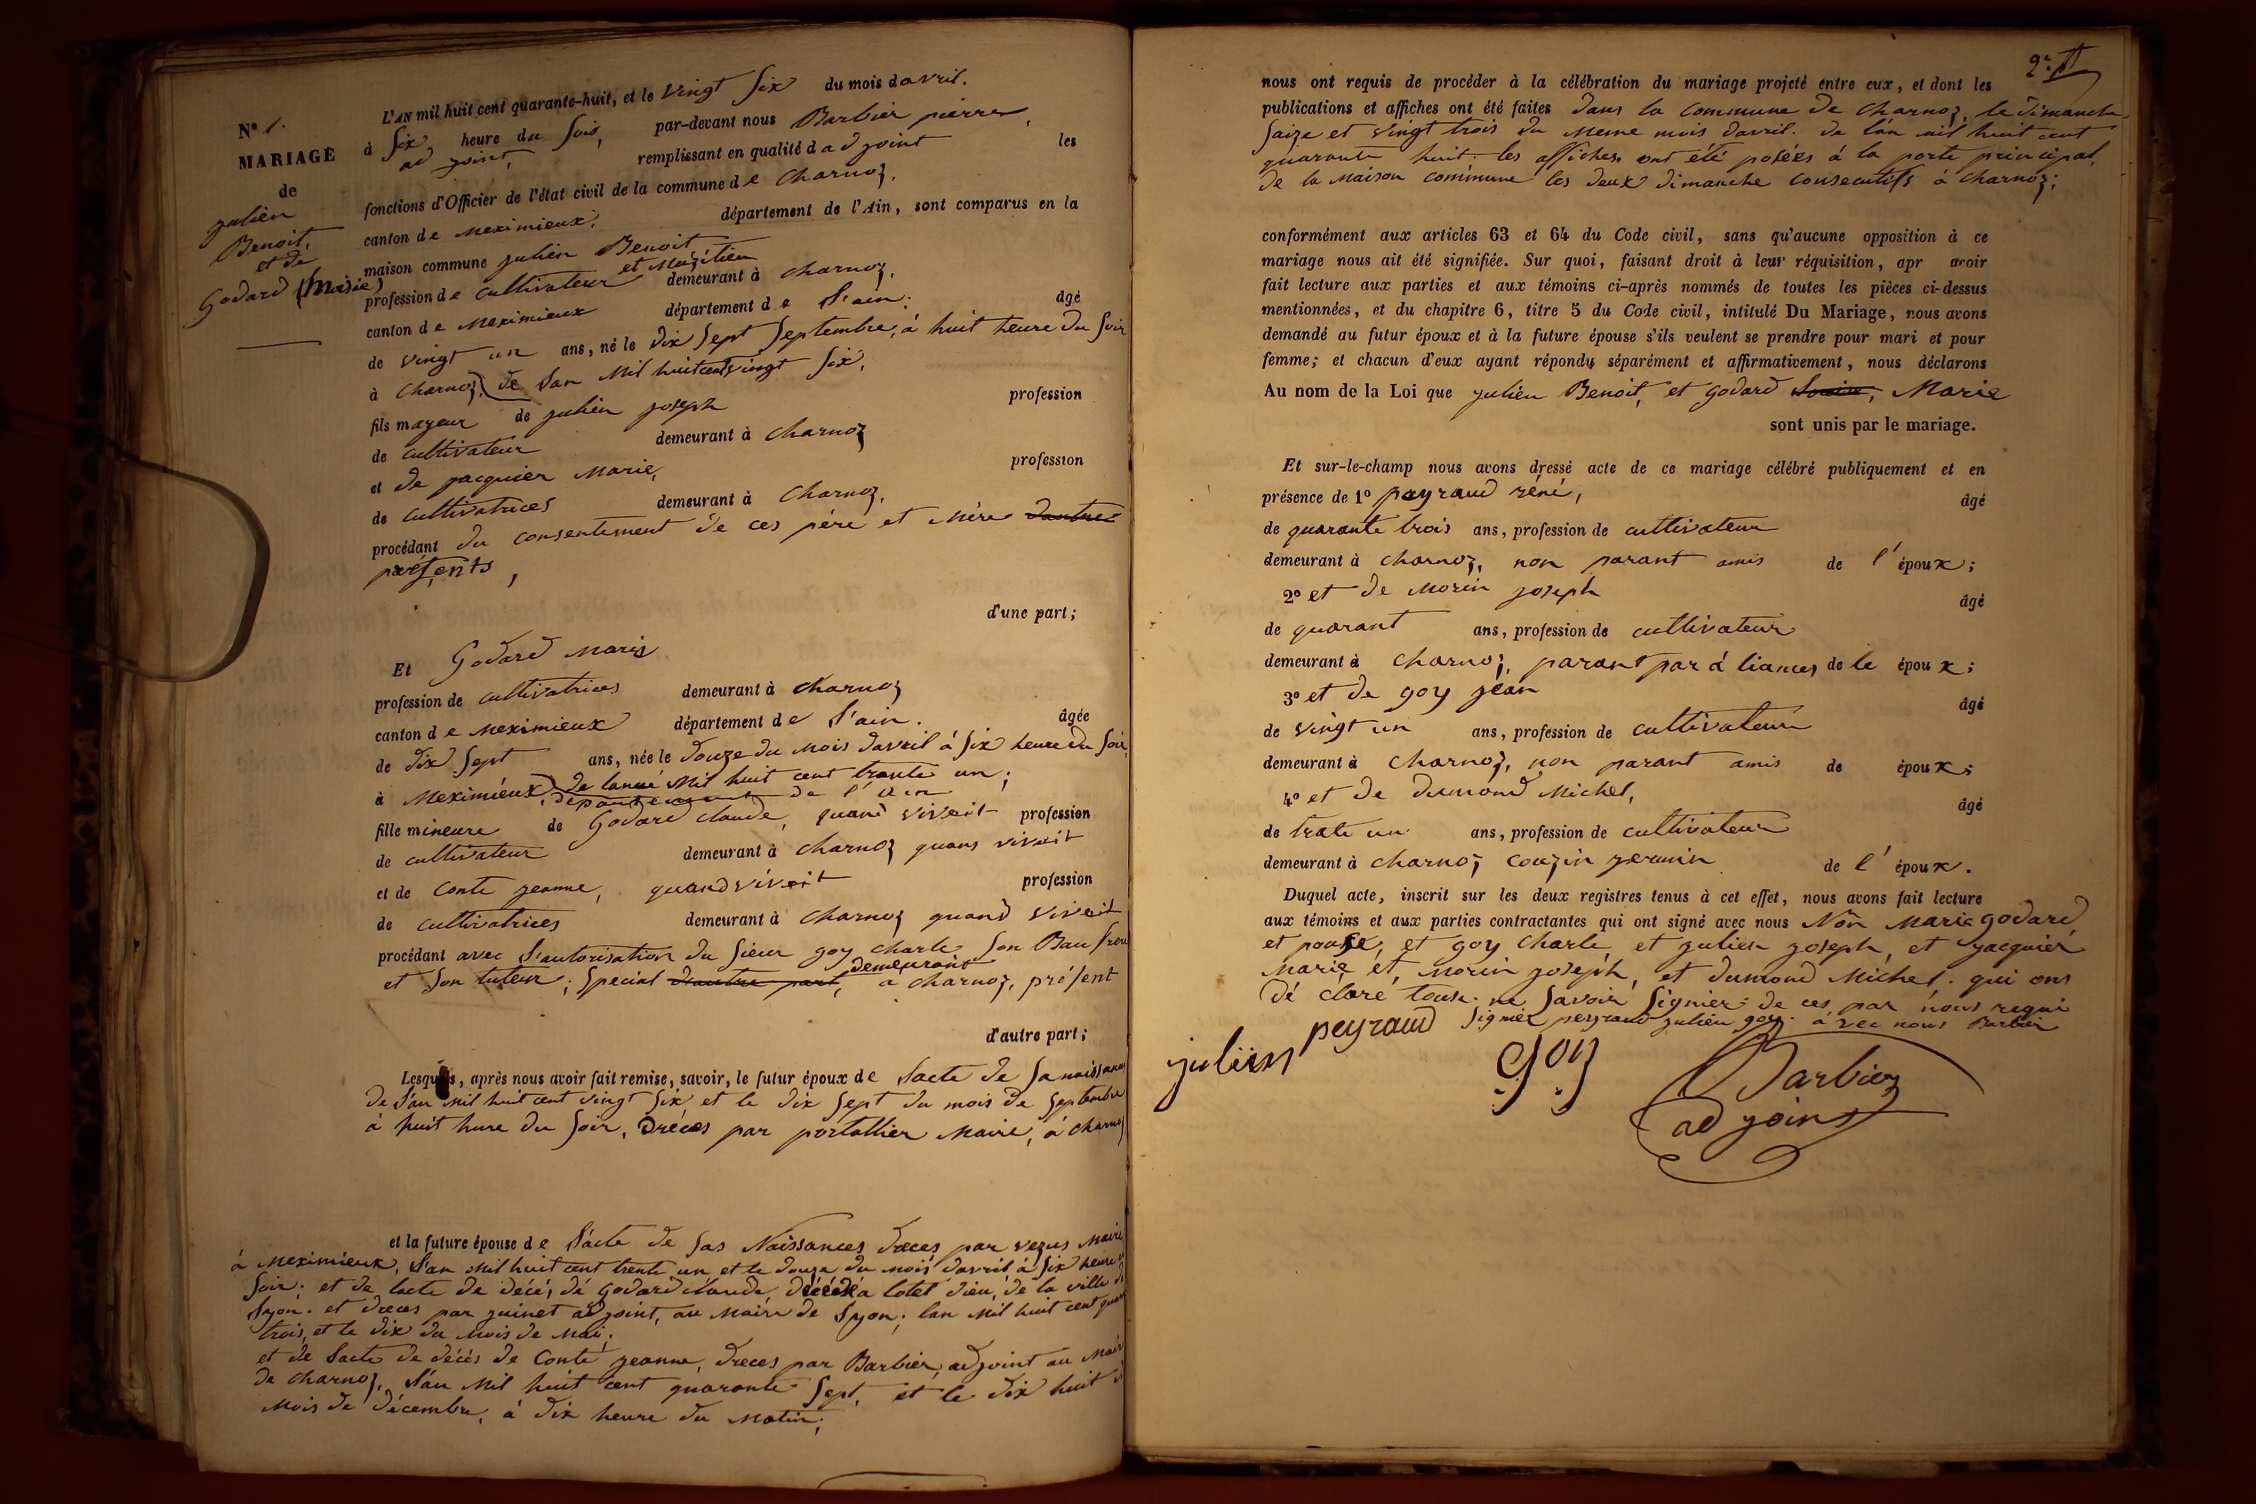 N° 1.
MARIAGE
de
julien
Benoit,
et de
Godard (Marie)
L'AN mil huit cent quarante-huit, et le vingt six du mois davril.
à six heure du soir, par-devant nous Barbier pierre,
ad joint, remplissant en qualité d ad joint les
fonctions d'Officier de l'état civil de la commune de Charnoz,
canton de Meximieux, département de l'Ain, sont comparus en la
maison commune julien Benoit
profession de cultivateur et Meyitien demeurant à Charnoz,
canton de Meximieux département de l'ain; âgé
de vingt un ans, né le dix sept septembre, à huit heure du soir
à Charnoz, de lan Mil huit cent vingt six,
fils mageur de julien joseph profession
de cultivateur demeurant à Charnoz
et de jacquier Marie, profession
de cultivatrices demeurant à Charnoz,
procédant du consentement de ces père et Mère dautre
présents,
d'une part;
Et Godard Marie
profession de cultivatrices demeurant à Charnoz
canton de Meximieux département de l'ain. âgée
de dix sept ans, née le douze du Mois davril à six heure du soir,
à Meximieux, de lanné Mil huit cent trante un;
département de l'ain
fille mineure de Godard claude, quand vivait profession
de cultivateur demeurant à Charnoz quans vivait
et de Conte jeanne, quand vivait profession
de cultivatrices demeurant à Charnoz quand vivait
procédant avec l'autorisation du sieur goy charle son Bau frere
et son tuteur, special dautre part, demeurant a charnoz, présent
d'autre part;
Lesquels, après nous avoir fait remise, savoir, le futur époux de lacte de sa naissance
de l'an Mil huit cent vingt six et le dix sept du mois de septembre
à huit hure du soir, Dréces par portallier Maire, à charnoz
et la future épouse de l'acte de sas Naissances dreces par vezus Maire
à Meximieux, l'an Mil huit cent trente un et le douze du Mois davril à six heure
soir; et de lacte de décé, de godard claude, décédé a lotel dieu, de la ville de
Lyon. et dreces par juinet adjoint, au Maire de Lyon, lan Mil huit cent quarante
trois, et le dix du Mois de Mai;
et de lacte de décés de Conte jeanne, dreces par Barbier, adjoint au Maire
de Charnoz, l'an Mil huit cent quarante sept, et le dix huit
Mois de décembre, à dix heure du Matin;
2e
nous ont requis de procéder à la célébration du mariage projeté entre eux, et dont les
publications et affiches ont été faites dans la commune de charnoz, le dimanche
saize et vingt trois du Meme mois davril. de l'an mil huit cent
quarante huit. les affiches ont été posées à la porte principal,
de la Maison commune les deux dimanche consecutifs à charnoz;
conformément aux articles 63 et 64 du Code civil, sans qu'aucune opposition à ce
mariage nous ait été signifiée. Sur quoi, faisant droit à leur réquisition, apr avoir
fait lecture aux parties et aux témoins ci-après nommés de toutes les pièces ci-dessus
mentionnées, et du chapitre 6, titre 5 du Code civil, intitulé Du Mariage, nous avons
demandé au futur époux et à la future épouse s'ils veulent se prendre pour mari et pour
femme; et chacun d'eux ayant répondu séparément et affirmativement, nous déclarons
Au nom de la Loi que julien Benoit, et godard Louise, Marie
sont unis par le mariage.
Et sur-le-champ nous avons dressé acte de ce mariage célébré publiquement et en
présence de 1° peyraud réné, âgé
de quarante trois ans, profession de cultivateur
demeurant à charnoz, non parant amis de l'époux;
2° et de Morin joseph âgé
de quarant ans, profession de cultivateur
demeurant à Charnoz, parant par à liances de le époux;
3° et de goy jean âgé
de vingt un ans, profession de cultivateur
demeurant à Charnoz, non parant amis de époux;
4° et de dumond Michel, âgé
de trate un ans, profession de cultivateur
demeurant à charnoz couzin jermin de l'époux.
Duquel acte, inscrit sur les deux registres tenus à cet effet, nous avons fait lecture
aux témoins et aux parties contractantes qui ont signé avec nous Non Marie godard
et pouse, et goy charle et julien joseph, et jacquier
Marie, et, Morin joseph, et dumond Michel. qui ons
dé claré touse ne savoir signier: de ces par nous requi
signier peyraud julien goy. avec nous Barbier
julien peyraud goy Barbier
ad joint